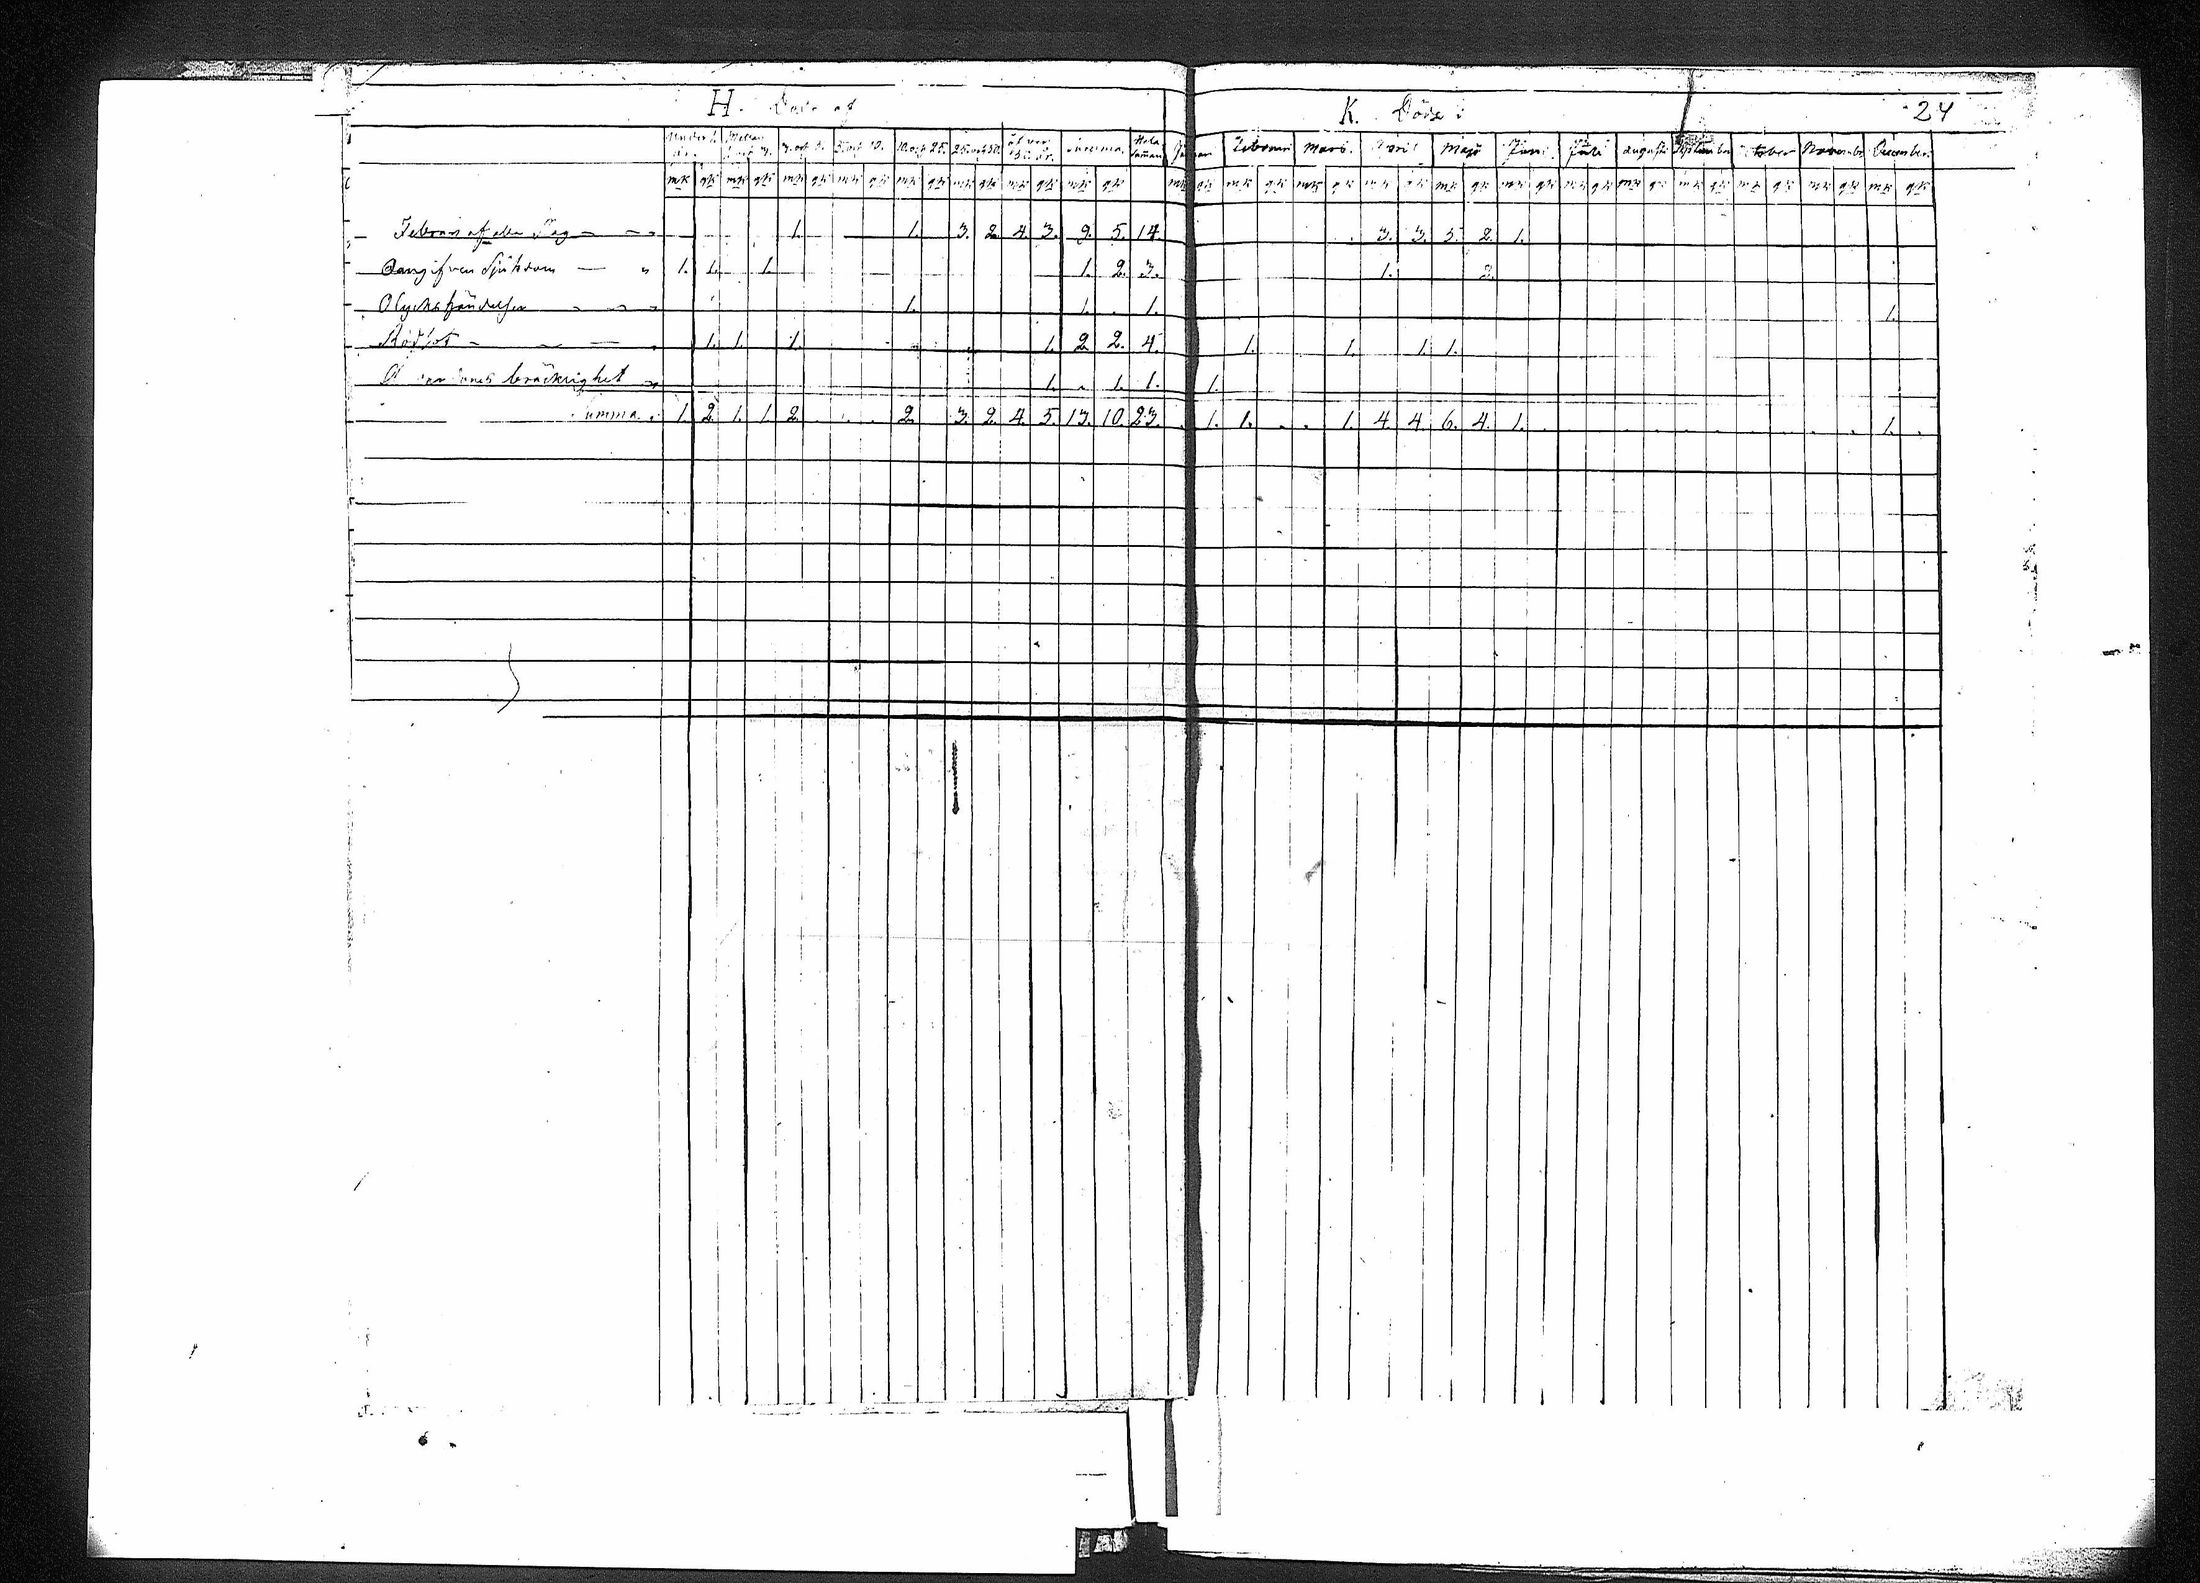 H. Döde af
K. Döde i
24
Under 1 år. Mellan 1 och 3. 3. och 5. 5. och 10. 10. och 25. 25. och 50. öfver 50 år. Summa. Hela Suman Januari Februari Mars. April Maji Juni. Juli augusti September october November December.
mk qk mk qk mk qk mk qk mk qk mk qk mk qk mk qk mk qk mk qk mk qk mk qk mk qk mk qk mk qk mk qk mk qk mk qk mk qk mk qk
Febrar af alla slag 1. 1. 3. 2. 4. 3. 9. 5. 14. 3. 3. 5. 2. 1.
Oangifven Sjukdom " 1. 1. 1. 1. 2. 3. 1. 2.
Olyckshändelser 1. 1. . 1. 1.
Rödsot 1. 1. 1. 1. 2 2. 4. 1. 1. 1. 1.
bräcklighet 1. . 1. 1. 1.
Summa. 1. 2. 1. 1. 2. . . . 2. 3. 2. 4. 5. 13. 10. 23. . 1. 1. . . 1. 4. 4. 6. 4. 1. . . . . . . . . . . . 1. .